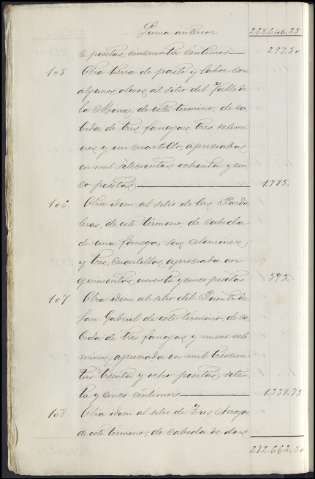 Suma anterior 222.646,25
te pesetas, cincuenta centimos 272,50
105 Otra tierra de pasto y labor con
algunos olivos, al sitio del
la de este termino, de ca-
bida de tres fanegas, tres celemi-
nes, y un cuartillo, apreciada
en mil setecientas ochenta y cin-
co pesetas 1.785,
106 Otra idem al sitio de las
de este termino, de cabida
de una fanega, celemines,
y tres cuartillos, apreciada en
quinientas noventa y cinco pesetas 595,
107 Otra idem al sitio del Puente de
San Gabriel de este termino, de ca-
bida de tres fanegas y nueve cele-
mines, apreciada en mil trescien-
tas treinta y ocho pesetas, seten-
ta y cinco centimos 1.338,75
108 Otra idem al sitio de
de este termino de cabida de dos